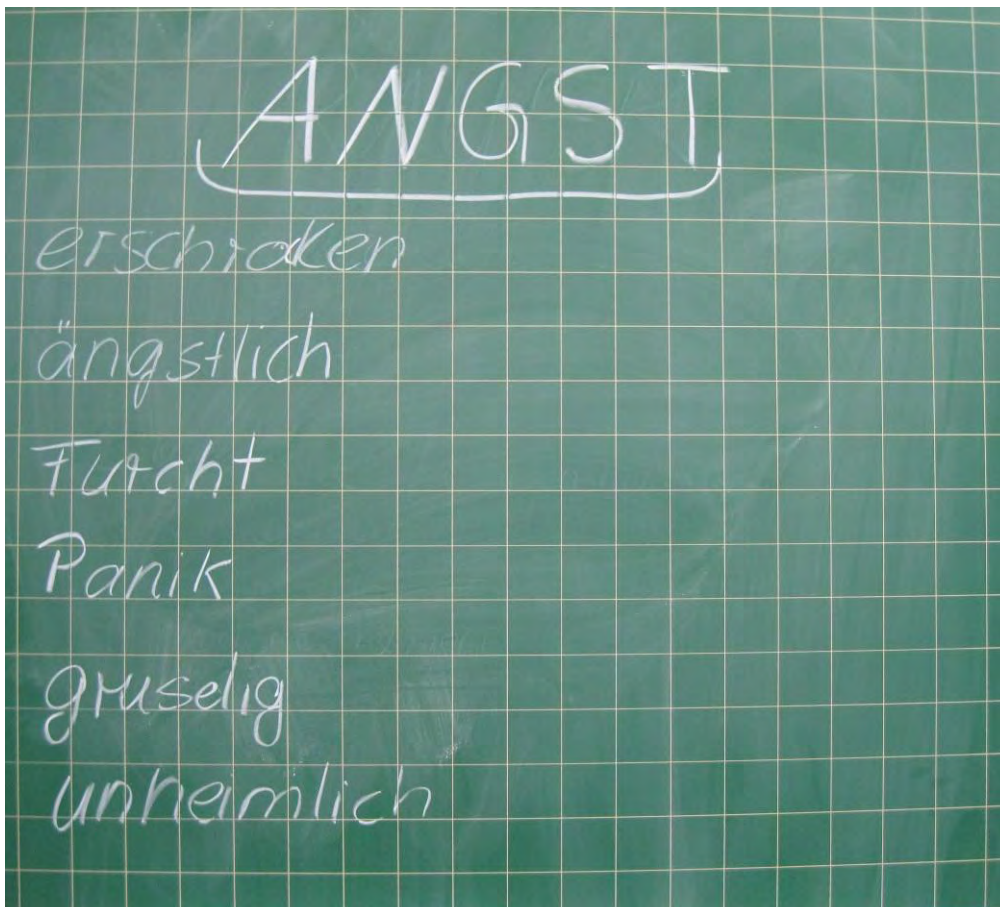 ANGST
erschrocken
ängstlich
Furcht
Panik
gruselig
unheimlich